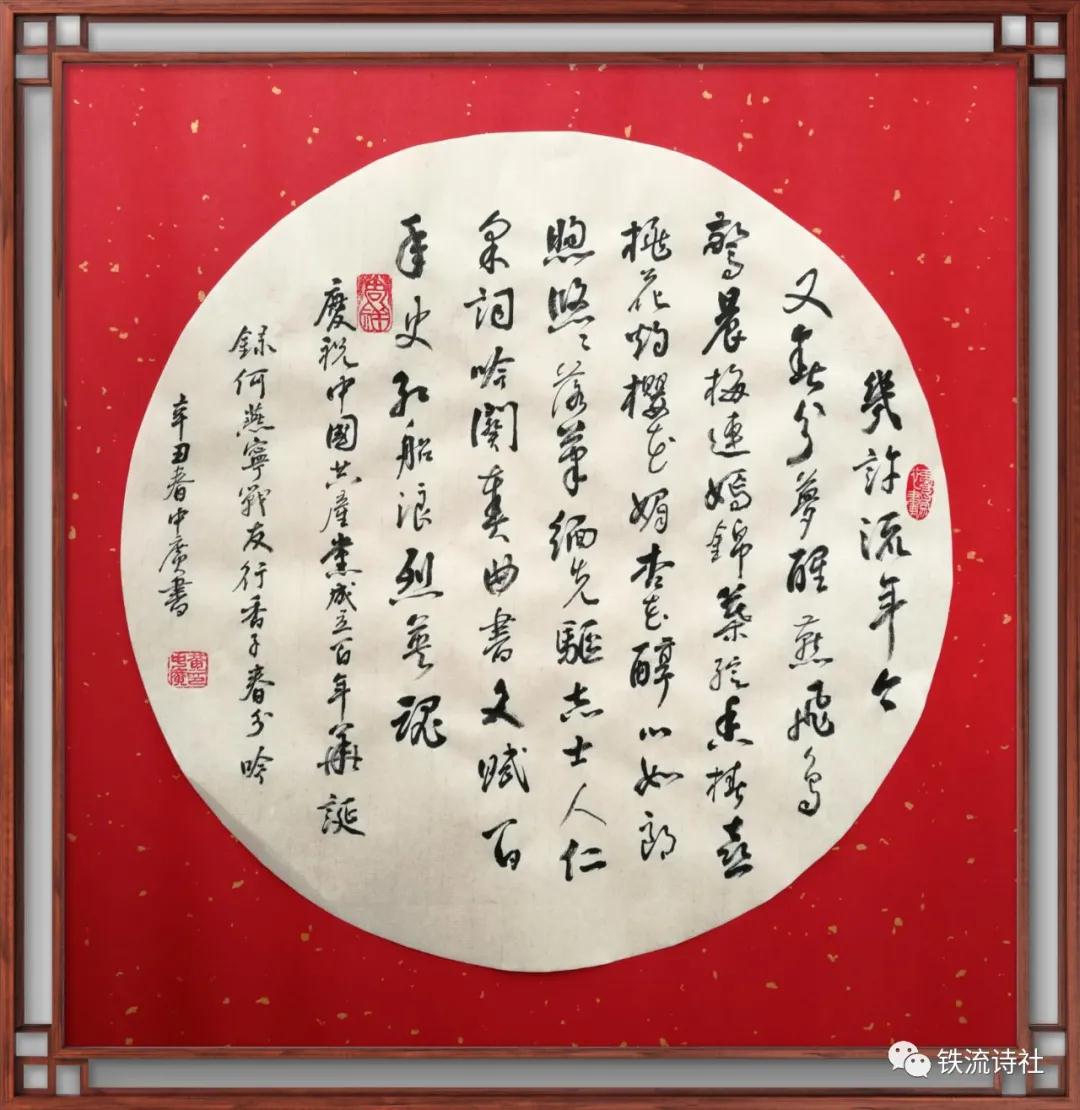 幾許流年今
又春分夢醒燕飛鳥
驚晨梅連嫣錦葉綻香椿喜
桃花灼櫻花媚杏花醇心如朗
照悠〻落筆緬先驅志士人仁
詞吟闋奏曲書文賦百
年史紅船浪烈英魂
慶祝中國共產黨成立百年華誕
錄何燕寧戰友行香子春分吟
辛丑春中廣書
铁流诗社